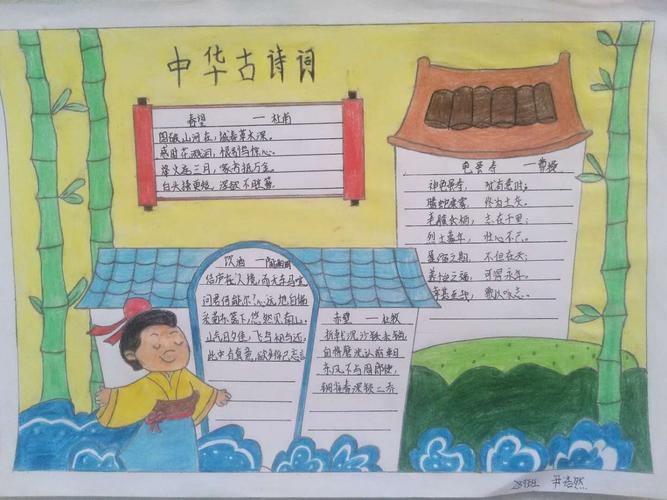 中华古诗词
春望 — 杜甫
国破山河在，城春草木深。
感时花溅泪，恨别鸟惊心。
烽火连三月，家书抵万金。
白头搔更短，浑欲不胜簪。
龟虽寿 — 曹操
神龟虽寿，犹有竟时；
腾蛇乘雾，终为土灰。
老骥伏枥，志在千里；
烈士暮年，壮心不已。
盈缩之期，不但在天；
养怡之福，可得永年。
幸甚至哉，歌以咏志。
饮酒 — 陶渊明
结庐在人境，而无车马喧。
问君何能尔？心远地自偏
采菊东篱下，悠然见南山。
山气日夕佳，飞鸟相与还。
此中有真意，欲辨已忘言
赤壁 — 杜牧
折戟沉沙铁未销
自将磨洗认前朝
东风不与周郎便，
铜雀春深锁二乔